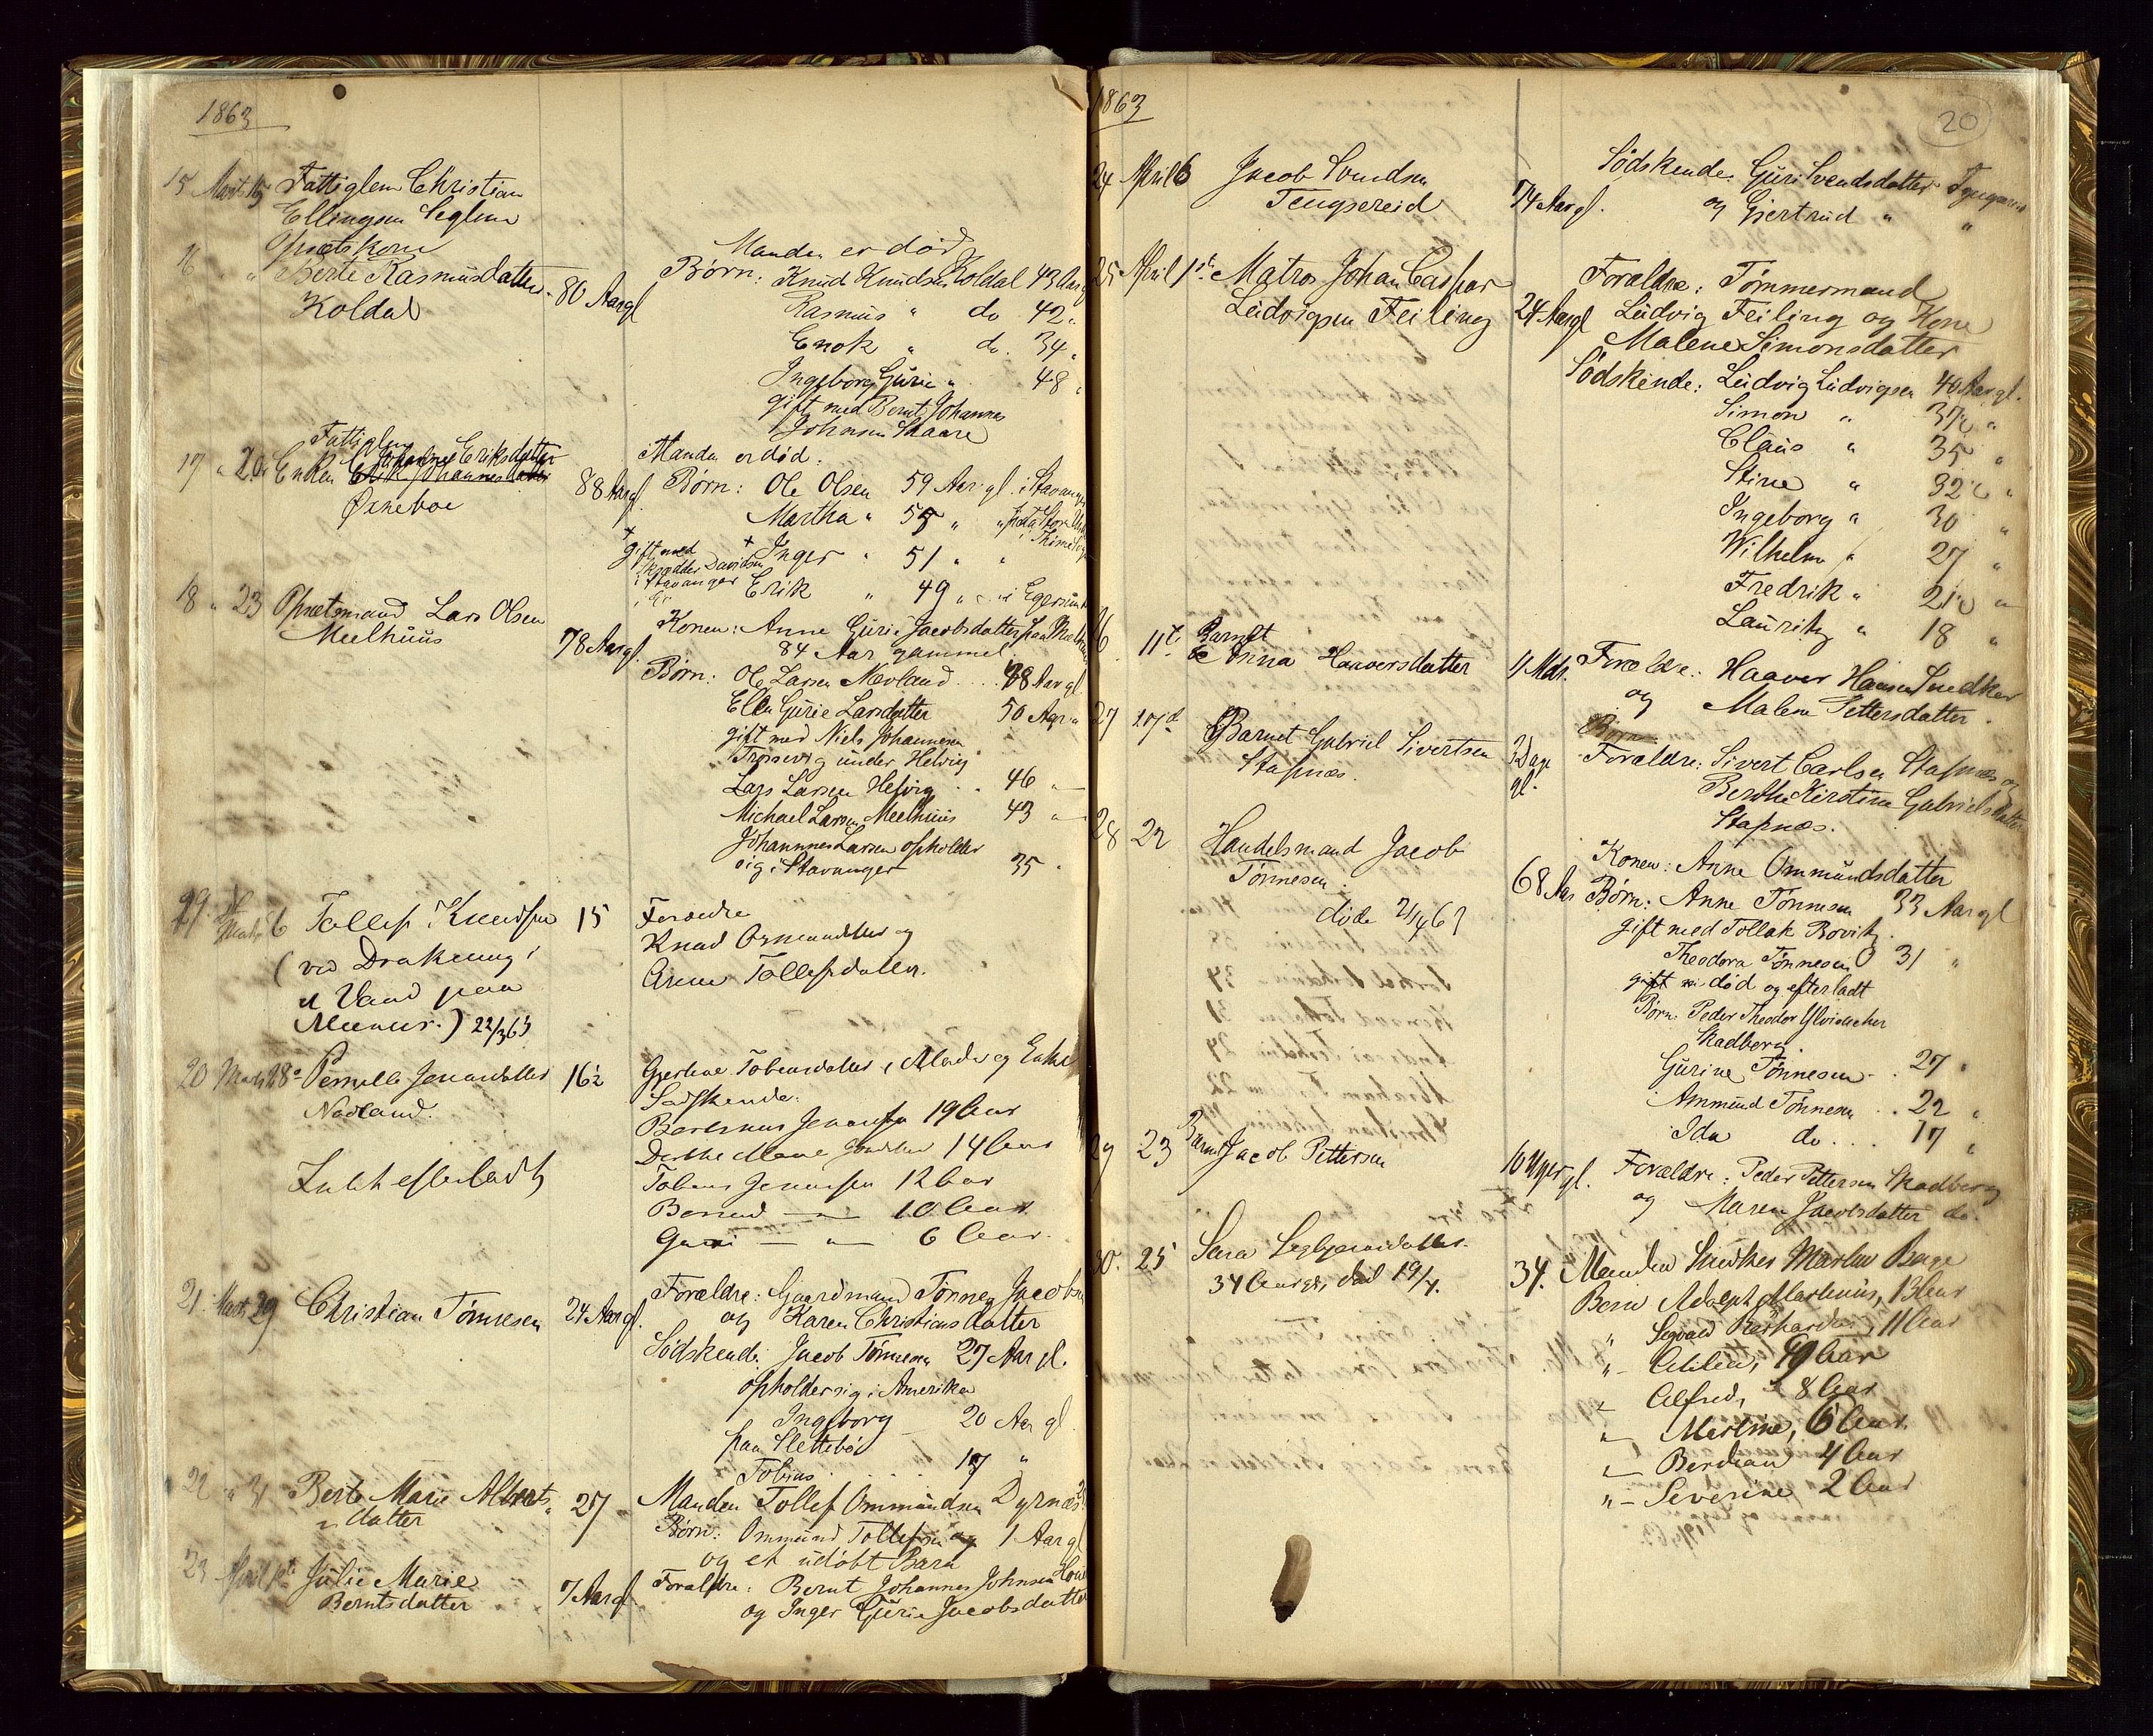 1863
15 Mart. 15 Fattiglem Christian
Ellingsen Seglem
16 " " Opsætskone
Berte Rasmusdatter
Koldal
80 Aar gl
Manden er død
Børn: Knud Knudsen Koldal 43 Aar g
Rasmus " do 42 "
Enok " do. 34 "
Ingeborg Gurie " 48 "
gift med Bernt Johannes
Johnsen Skaare
17 " 20 Fattiglem
Enken Johanne Eriksdatter
Øxneboe
88 Aar gl
Manden er død:
Børn: Ole Olsen 59 Aar gl. i Stavanger
Martha " 55 "
+ Inger " 51 " "
+ gift med
Skrædder Davidsen
i Stavanger
Erik " 49 " i Egersund
18 " 23 Opsætsmand Lars Olsen
Meelhuus
78 Aar gl.
Konen: Anne Gurie Jacobsdatter paa
84 Aar gammel
Børn: Ole Larsen Nævland 48 Aar gl
Ellen Gurie Larsdatter 50 Aar "
gift med Niels Johannesen
Trossevig under Helvig
Lars Larsen Helvig 46 "
Michael Larsen Meelhuus 43 "
Johannes Larsen opholder
sig i Stavanger 35 "
19. 26 Tollef Knudsen
(ved Drukning i
et Vand paa
) 22/3 63
15
Forældre
Knud Osmundsen og
Anne Tollefsdatter.
20 Marts 28 Pernille Jonasdatter
Nodland.
Intet efterladt
16 1/2
Gjertine Tobiasdatter, Moder og Enke
Sødskende:
Jonassen 19 Aar
Dorthe Marie Jonasdatter 14 Aar
Tobias Jonassen 12 Aar
Berned — " — 10 Aar
Guri — " — 6 Aar.
21. Mart. 29 Christian Tønnesen
24 Aar gl.
Forældre: Gaardmand Tønnes Jacobsen
og Karen Christiansdatter
Sødskende: Jacob Tønnesen 27 Aar gl.
opholder sig i Amerika
Ingeborg 20 Aar gl
paa Slettebø
Tobias 17 "
22 " 31 Berte Marie Alberts-
datter
27
Manden Tollef Ommundsen Dyrnæs
Børn: Ommund Tollefsen 1 Aar gl
og et udøbt Barn
23 April 1ste Julie Marie
Berntsdatter
7 Aar gl
Forældre: Bernt Johannes Johnsen
og Inger Gurie Jacobsdatter
1863
20
24 April 6 Jacob Svendsen
Tengsereid
74 Aar gl.
Sødskende: Guri Svendsdatter Tengsereid
og Gjertrud " "
25 April 1ste Matros Johan Caspar
Ludvigsen Feiling
24 Aar gl
Forældre: Tømmermand
Ludvig Feiling og Kone
Malene Simonsdatter
Sødskende: Ludvig Ludvigsen 40 Aar gl.
Simon " 37 1/2 "
Claus " 35 "
Stine " 32 1/2 "
Ingeborg " 30 "
Wilhelm " 27 "
Fredrik " 21 1/2 "
Lauritz " 18 "
26 11te Barnet
Anna Haaversdatter
4 Mdr.
Forældre: Haaver Hansen Snedker
og Malene Pettersdatter.
27 17de Barnet Gabriel Sivertsen
Stapnæs.
3 Dage
gl.
Forældre: Sivert Carlsen Stapnæs og
Berthe Kirstine Gabrielsdatter
Stapnæs.
28 22 Handelsmand Jacob
Tønnesen.
døde 21/4 63
68 Aar
Konen: Anne Ommundsdatter
Børn: Anne Tønnesen 33 Aar gl
gift med Tollak Rovik.
Theodora Tønnesen 31 "
død og efterladt
Børn: Peder Theodor
Skadberg.
Gurine Tønnesen 27 "
Ammund Tønnesen 22 "
Ida do. 17 "
29 23 Barnet Jacob Pettersen
10 Uger gl.
Forældre: Peder Pettersen Skadberg
og Maren Jacobsdatter do.
30. 25 Sara
34 Aar gl. død 19/4.
34.
Manden Snedker Martin Berge
Børn Adolph Martinius, 13 Aar
" 11 Aar
" — 9 Aar
" — Alfred, 8 Aar
" — Martine, 6 Aar
" — 4 Aar
" — Severine 2 Aar